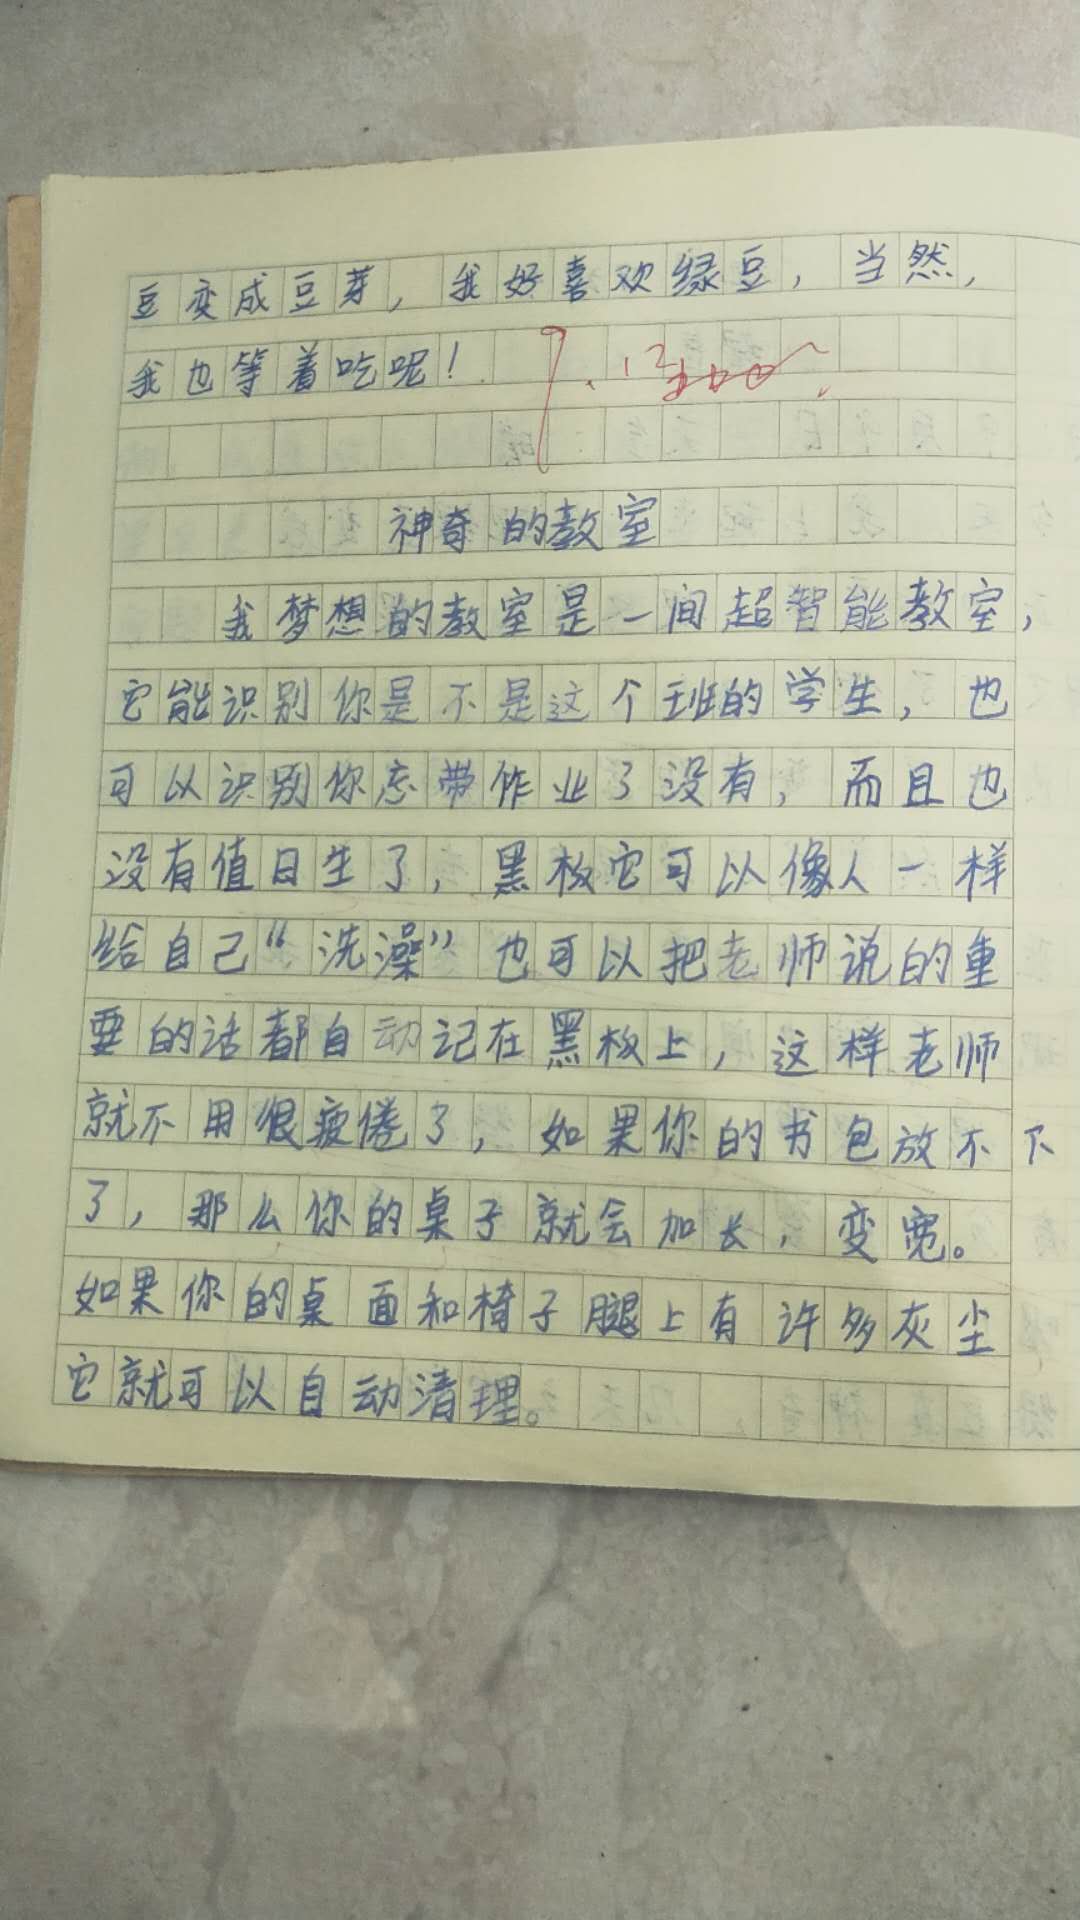 豆变成豆芽，我好喜欢绿豆，当然，
我也等着吃呢！
神奇的教室
我梦想的教室是一间超智能教室，
它能识别你是不是这个班的学生，也
可以识别你忘带作业了没有，而且也
没有值日生了，黑板它可以像人一样
给自己“洗澡”也可以把老师说的重
要的话都自动记在黑板上，这样老师
就不用很疲倦了，如果你的书包放不下
了，那么你的桌子就会加长，变宽。
如果你的桌面和椅子腿上有许多灰尘
它就可以自动清理。